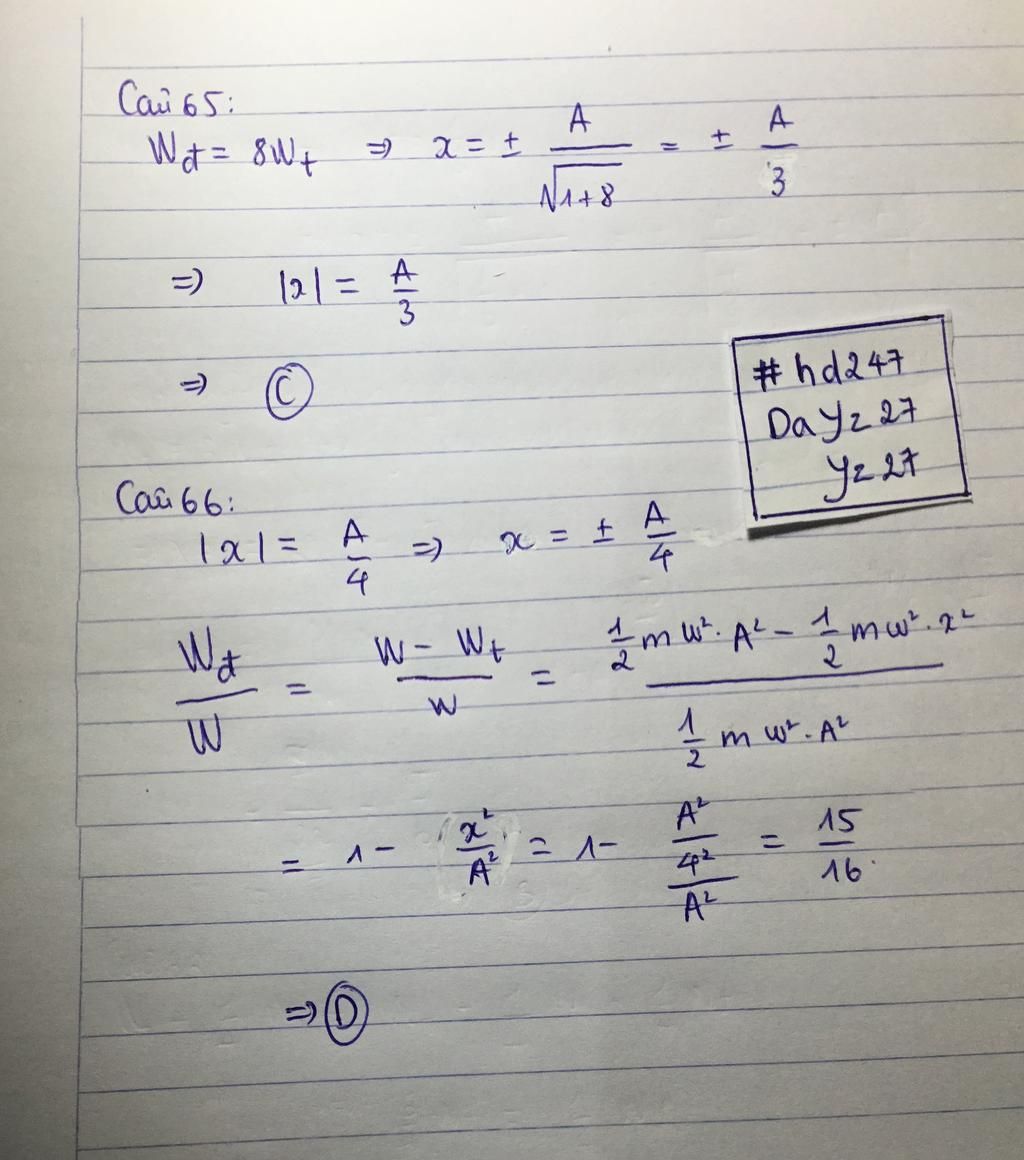 Câu 65:
Wđ = 8Wt ⇒ x = ± A/√(1+8) = ± A/3
⇒ |x| = A/3
⇒ C
#hd247
DaYz27
Yz27
Câu 66:
|x| = A/4 ⇒ x = ± A/4
Wđ/W = (W − Wt)/W = (1/2 mω².A² − 1/2 mω².x²)/(1/2 mω².A²)
= 1 − x²/A² = 1 − (A²/4²)/A² = 15/16
⇒ D